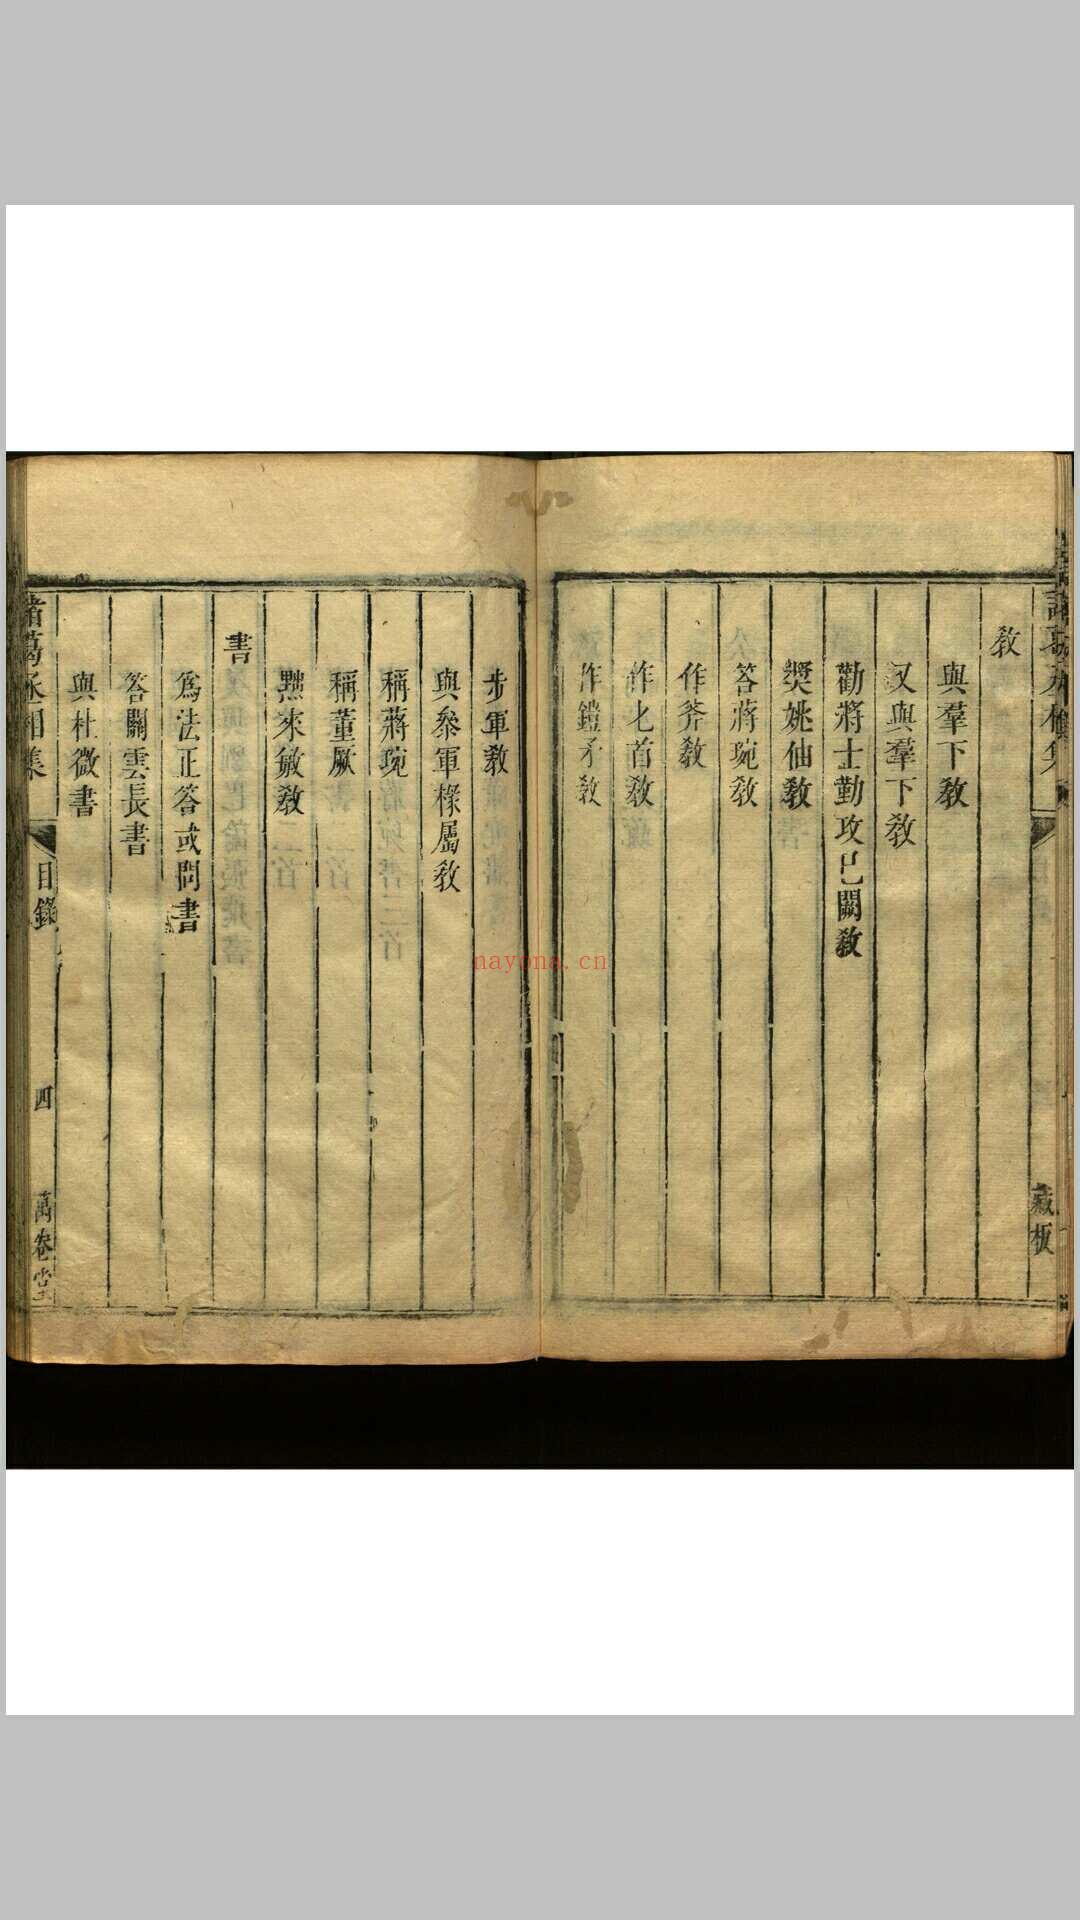 教
與羣下教
又與羣下教
勸將士勤攻已闕教
奨姚伷教
答蔣琬教
作斧教
作匕首教
作鎧矛教
藏板
步軍教
與參軍椽屬教
稱蔣琬
稱董厥
黜來敏教
書
為法正答或問書
答關雲長書
與杜微書
諸葛丞相集
目錄
四
萬卷堂
nayona.cn